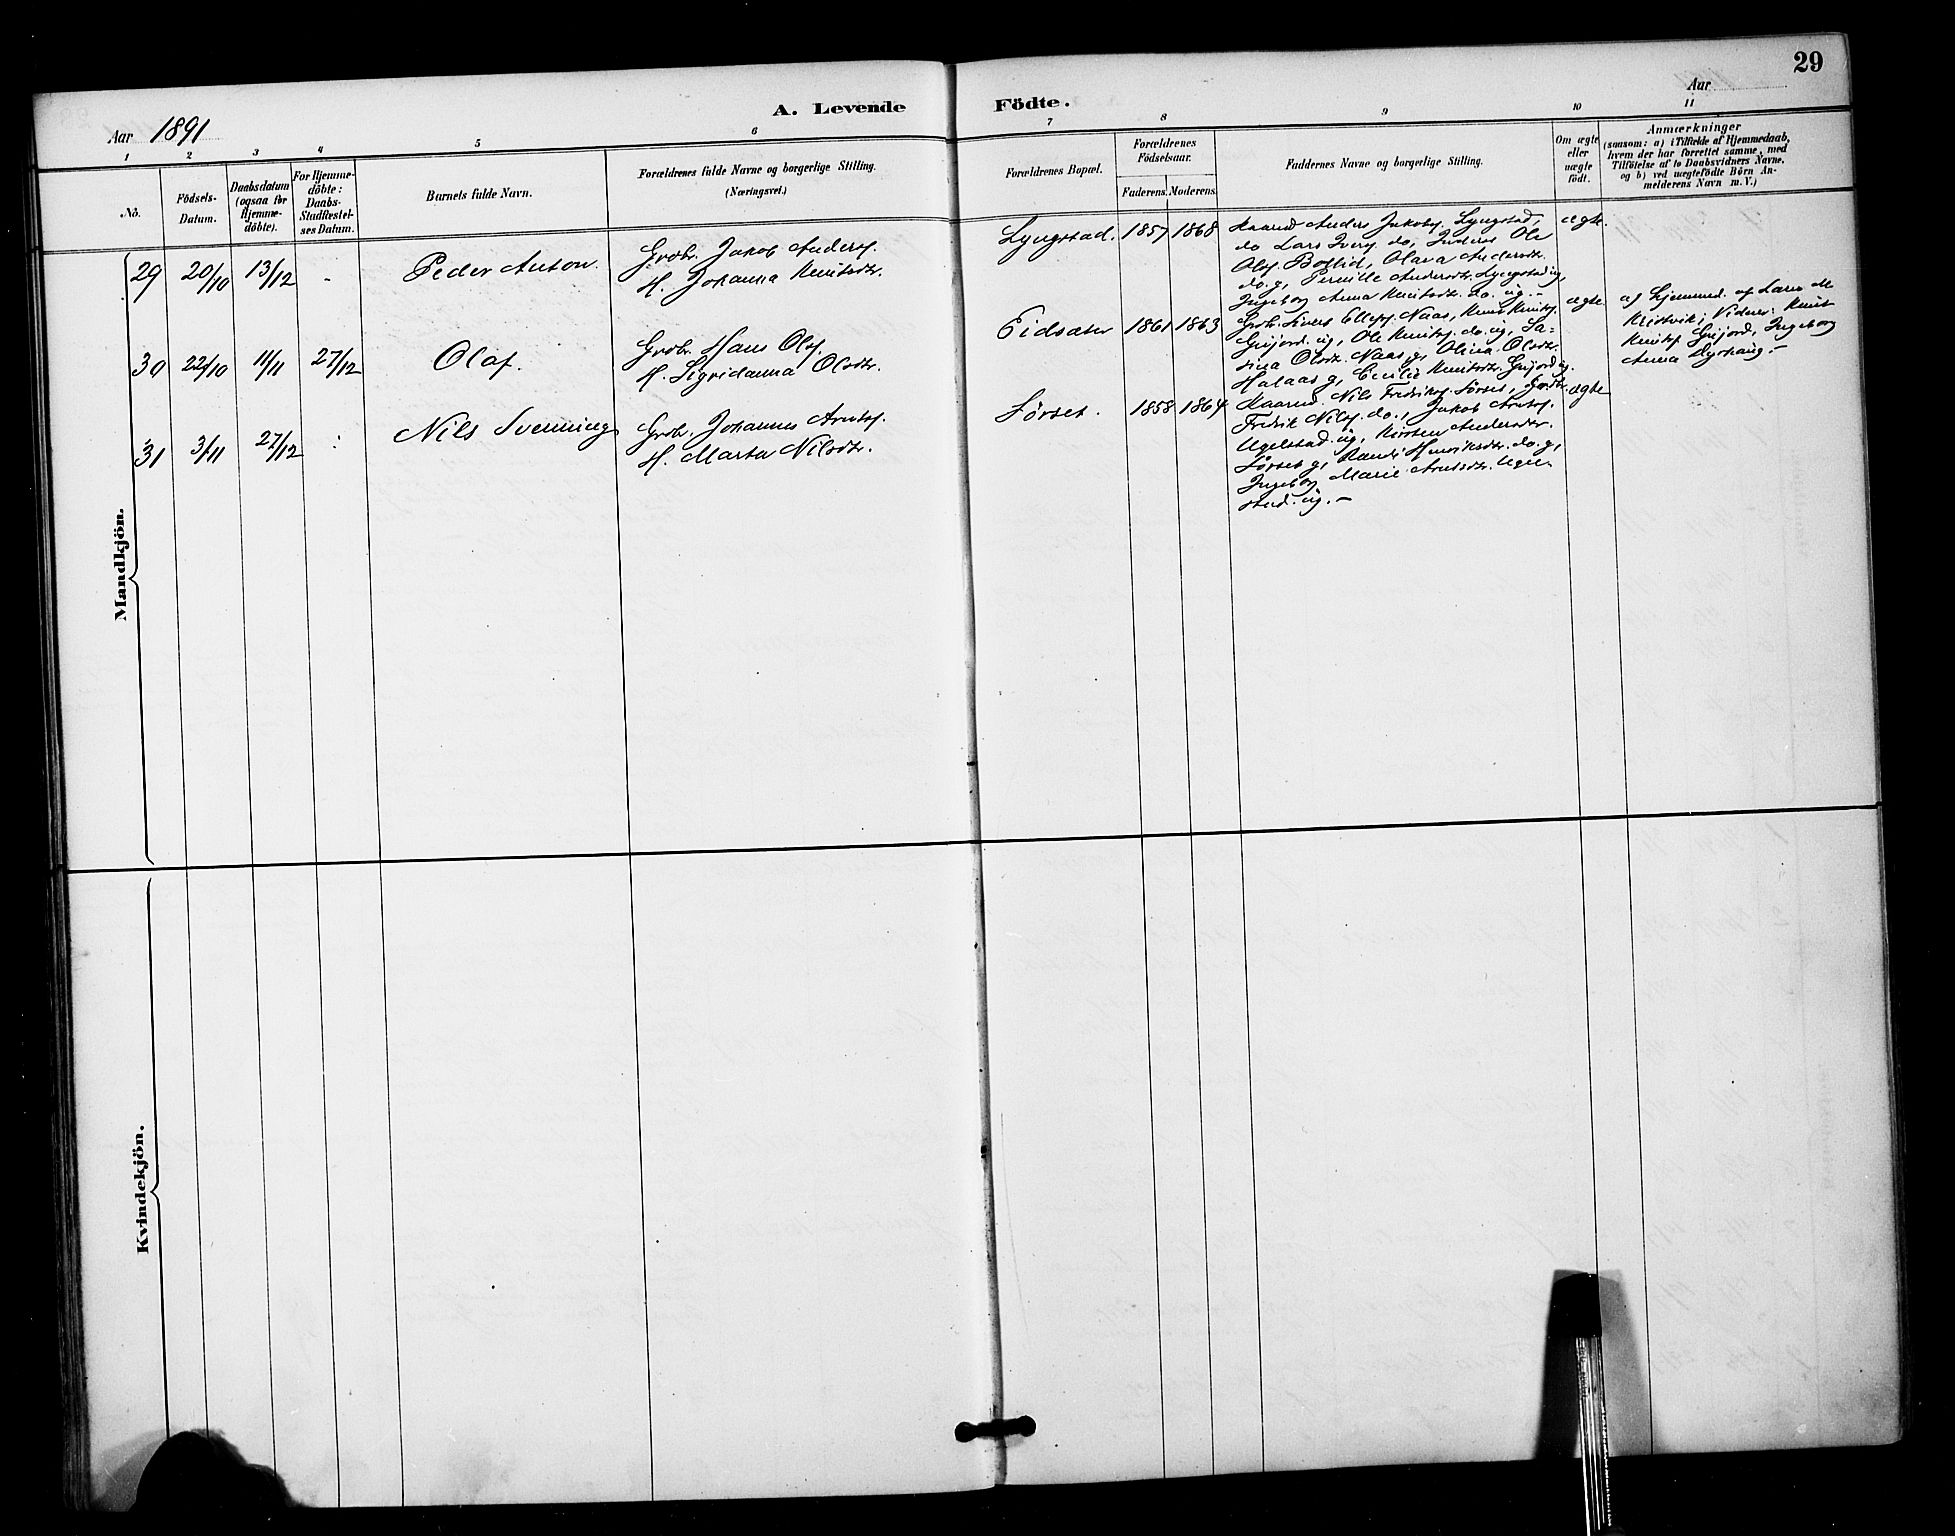 29
Aar 1891
A. Levende Födte.
Aar
1 2 3 4 5 6 7 8 9 10 11
No.
Födsels-
Datum.
Daabsdatum
(ogsaa for
Hjemme-
döbte).
For Hjemme-
döbte:
Daabs-
Stadfæstel-
ses Datum.
Barnets fulde Navn.
Forældrenes fulde Navne og borgerlige Stilling.
(Næringsvei.)
Forældrenes Bopæl.
Forældrenes
Födselsaar.
Faderens. Moderens.
Faddernes Navne og borgerlige Stilling.
Om ægte
eller
uægte
födt.
Anmærkninger
(saasom: a) i Tilfælde af Hjemmedaab,
hvem der har forrettet samme, med
Tilföielse af to Daabsvidners Navne,
og b) ved uægtefödte Börn An-
melderens Navn m. V.)
Mandkjön.
29 20/10 13/12 -
Peder Anton.
Grdbr. Jakob Anders.
H. Johanna Knutsdtr.
Lyngstad. 1857 1868
Kaarmd Anders Jakobs. Lyngstad,
do Lars Ivers. do, Inderst Ole
Ols. Bollid, Olava Andersdtr.
do. g, Pernille Andersdtr. Lyngstad ug,
Ingeborg Anna Knutsdtr. do. ug. -
ægte.
30 22/10 11/11 27/12
Olaf.
Grdbr. Hans Ols.
H. Sigridanna Olsdtr.
Eidsæter 1861 1863
Grdbr. Sivert Ellefs. Naas, Knut Knuts.
Grijord. ug, Ole Knuts. do. ug, Sa-
sina Olsdtr. Naas g, Olina Olsdtr.
Halaas g, Cecilie Knutsdtr. Grijord ug.
ægte
a) Hjemmed. af Lars M
Kristvik; Vidner: Knut
Knuts. Grijord, Ingeborg
Anna Dyrhaug. -
31 3/11 27/12
Nils Svenning
Grdbr. Johannes Arnts.
H. Marta Nilsdtr.
Sörset. 1858 1864
Kaarmd. Nils Fredriks. Sörset, Grdbr.
Fredrik Nils. do., Jakob Arnts.
Ugelstad. ug, Kirsten Andersdtr.
Sörset g, Randi Henriksdtr. do. g,
Ingeborg Marie Arntsdtr. Ugel-
stad. ug. -
ægte
Kvindekjön.